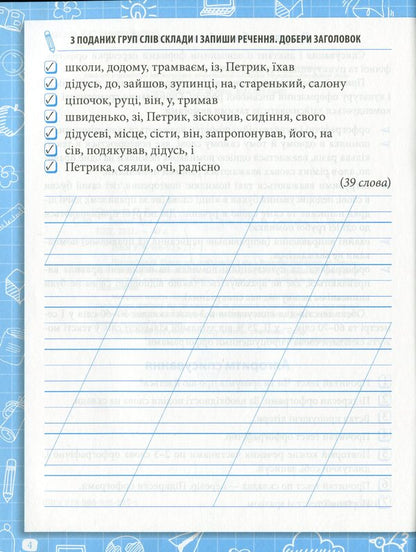 З ПОДАНИХ ГРУП СЛІВ СКЛАДИ І ЗАПИШИ РЕЧЕННЯ. ДОБЕРИ ЗАГОЛОВОК
школи, додому, трамваєм, із, Петрик, їхав
дідусь, до, зайшов, зупинці, на, старенький, салону
ціпочок, руці, він, у, тримав
швиденько, зі, Петрик, зіскочив, сидіння, свого
дідусеві, місце, сісти, він, запропонував, його, на
сів, подякував, дідусь, і
Петрика, сяяли, очі, радісно
(39 слова)
4